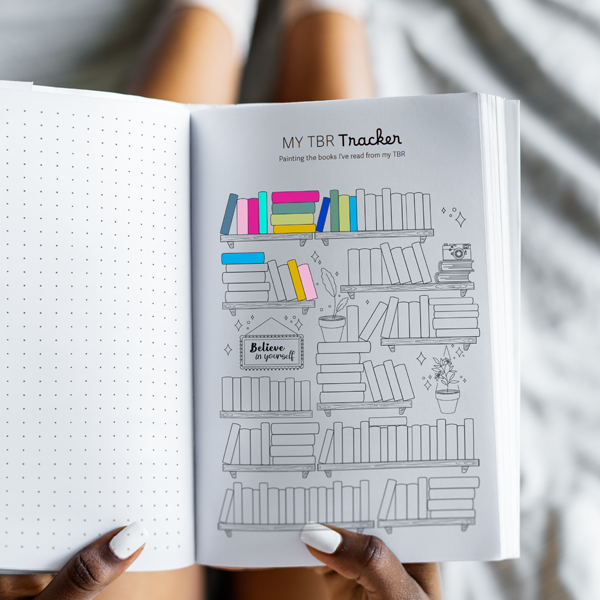 MY TBR Tracker
Painting the books I've read from my TBR
Believe
in yourself